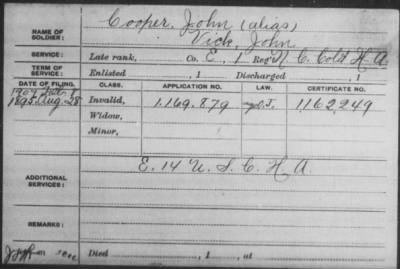 Cooper, John (alias)
NAME OF SOLDIER: Vick, John
SERVICE: Late rank, Co. E, 1 Reg't N. C. Cold H. A.
TERM OF SERVICE: Enlisted , 1 Discharged , 1
DATE OF FILING. CLASS. APPLICATION NO. LAW. CERTIFICATE NO.
1895. Aug. 28 Invalid, 1.169.879 1162249
Widow,
Minor,
ADDITIONAL SERVICES: E. 14 U. S. C. H. A.
REMARKS:
Died , 1 , at